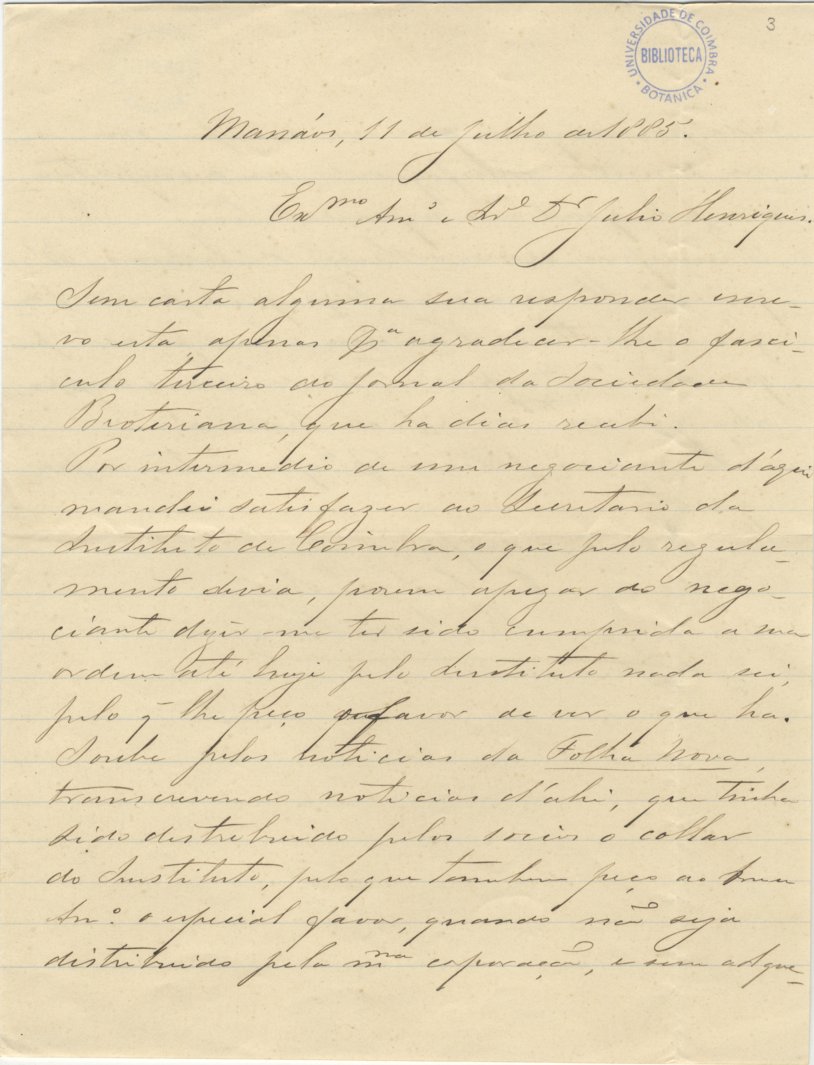 3
UNIVERSIDADE DE COIMBRA
BIBLIOTECA
BOTANICA
Manáos, 11 de Julho de 1885.
Exmo Amo e Dr Julio Henriques.
Sem carta alguma sua responder escre-
vo esta apenas Pa agradecer-lhe o fasci-
culo terceiro do jornal da Sociedade
Broteriana, que ha dias recebi.
Por intermedio de um negociante d'aqui
mandei satisfazer ao Secretario do
Instituto de Coimbra, o que pelo regula-
mento devia, porem apezar do nego-
ciante dizer-me ter sido cumprida a ma
ordem até hoje pelo Instituto nada sei,
pelo q̄ lhe peço favor de ver o que ha.
Soube pelas noticias da Folha Nova,
transcrevendo noticias d'ahi, que tinha
sido destribuido pelos socios o collar
do Instituto, pelo que tambem peço ao meu
Amo. o especial favor, quando não seja
distribuido pela mma corporação, e sim adque-